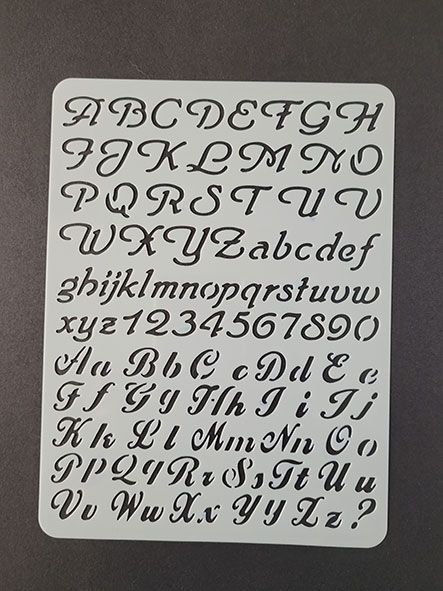 ABCDEFGH
IJKLMNO
PQRSTUV
WXYZabcdef
ghijklmnopqrstuvw
xyz1234567890
Aa Bb C c Dd E e
F f G g Hh I i J j
K k L l Mm Nn O o
P p Q q R r S s T t U u
V v Ww X x Y y Z z ?